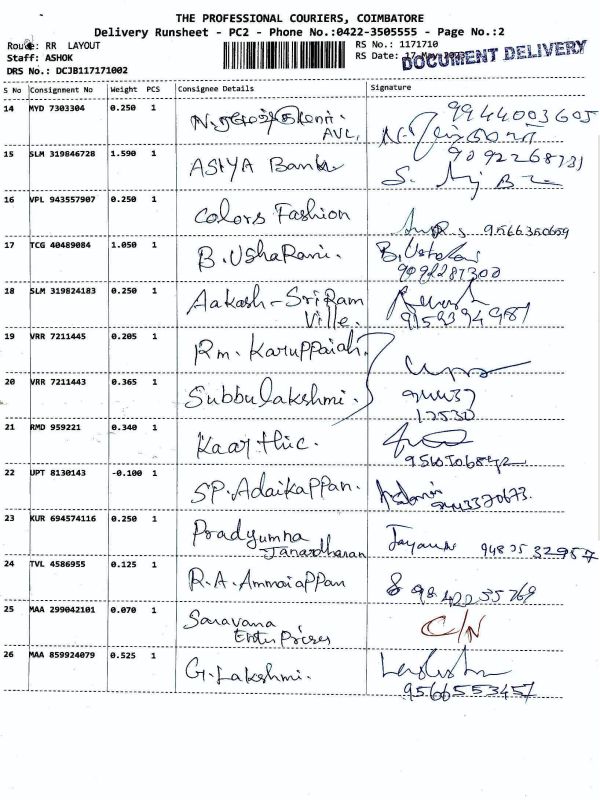 THE PROFESSIONAL COURIERS, COIMBATORE
Delivery Runsheet - PC2 - Phone No.:0422-3505555 - Page No.:2
Route: RR LAYOUT
RS No.: 1171710
Staff: ASHOK
RS Date: 17-May
DOCUMENT DELIVERY
DRS No.: DCJB117171002
S No Consignment No Weight PCS Consignee Details Signature
14 MYD 7303304 0.250 1
AVL. 9944003605
15 SLM 319846728 1.590 1 ASIYA Bank
16 VPL 943557907 0.250 1 Colors Fashion
17 TCG 40489084 1.050 1 B.UShaRani.
18 SLM 319824183 0.250 1 Aakash-SriRam
Ville.
19 VRR 7211445 0.205 1 Rm. Karuppaiah.
20 VRR 7211443 0.365 1 Subbulakshmi.
12530
21 RMD 959221 0.340 1 Kaarthic.
22 UPT 8130143 -0.100 1 SP.Adaikappan.
23 KUR 694574116 0.250 1 Pradyumna
Janardhanan
24 TVL 4586955 0.125 1 R.A.Ammaiappan
9842235769
25 MAA 299042101 0.070 1 Saravana C/N
EnterPrises
26 MAA 859924079 0.525 1 G.Lakshmi.
9566553457